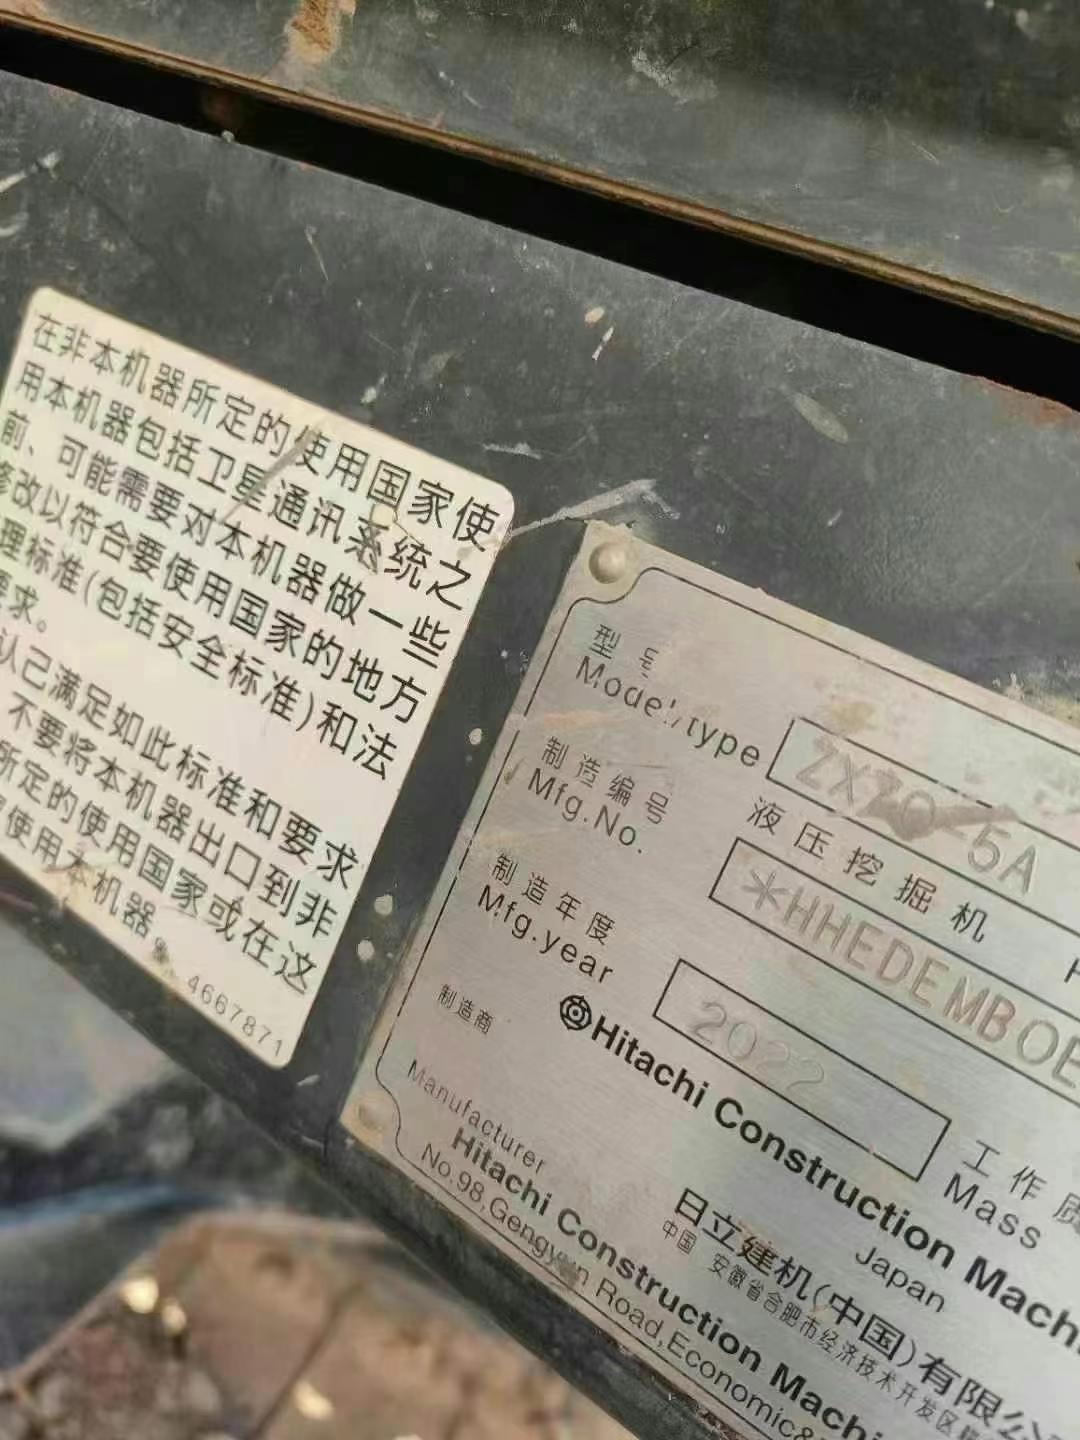 在非本机器所定的使用国家使
用本机器包括卫星通讯系统之
前、可能需要对本机器做一些
修改以符合要使用国家的地方
理标准(包括安全标准)和法
要求。
认己满足如此标准和要求
不要将本机器出口到非
所定的使用国家或在这
使用本机器。
4667871
型号
Model/type
ZX70-5A
液压挖掘机
制造编号
Mfg.No.
*HHEDEMB0E
制造年度
Mfg.year
2022
工作质
Mass
制造商
Hitachi Construction Machi
Japan
Manufacturer
日立建机(中国)有限公
中国 安徽省合肥市经济技术开发区
Hitachi Construction Machi
No.98,Gengyun Road,Economic&